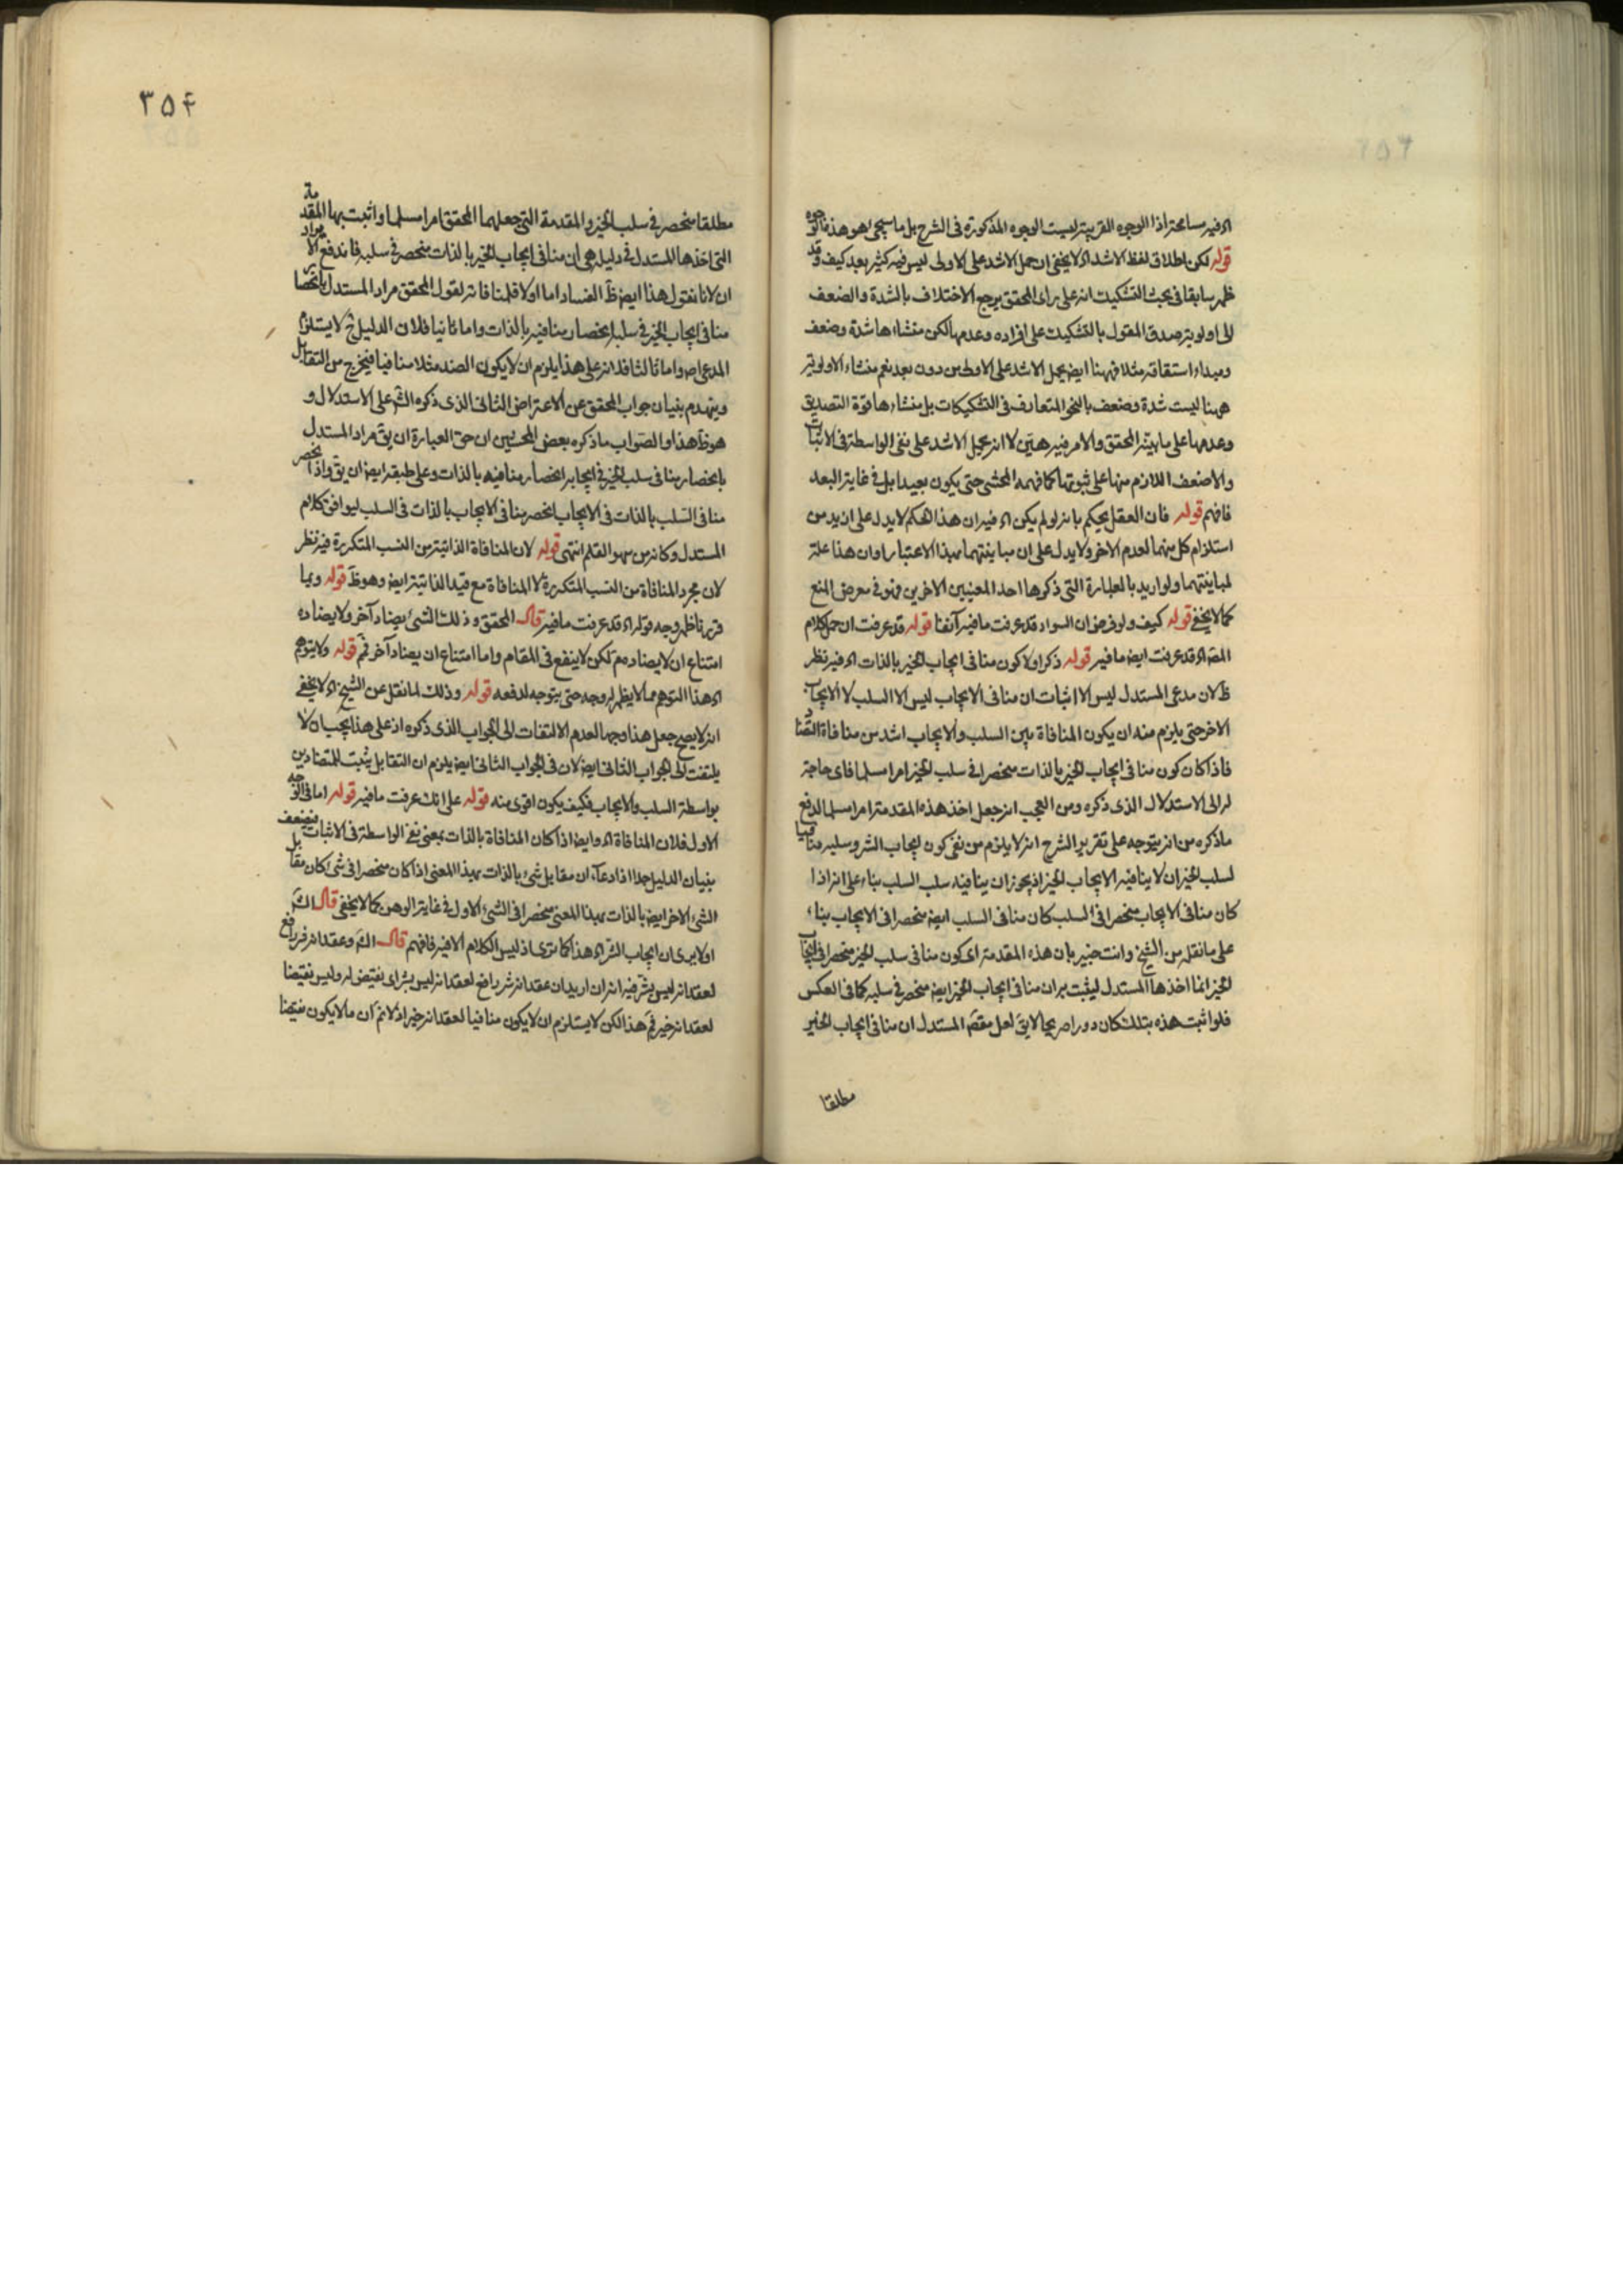 اه فيه مسامحة اذ الوجوه القريبة ليست الوجوه المذكورة فى الشرح بل ما سيجى اهو هذه الوجوه
قوله لكن اطلاق لفظ الاشد اه لا يخفى ان حمل الاشد على الاولى ليس فيه كثير بعد كيف وقد
ظهر سابقا فى بحث التشكيك انه على راى المحقق يرجع الاختلاف بالشدة والضعف
الى اولوية صدق المقول بالتشكيك على افراده وعدمها لكن منشاءها شدة وضعف
ومبداء اشتقاقه مثلا فههنا ايض يحمل الاشد على الاولى من دون بعد نعم منشاء الاولوية
ههنا ليست شدة وضعف بالنحو المتعارف فى التشكيكات بل منشاءها قوة التصديق
وعدمها على ما بينه المحقق والامر فيه هين لا انه يحمل الاشد على نفى الواسطة فى الاثبات
والاضعف اللازم منها على ثبوتها كما فهمه المحشى حتى يكون بعيدا بل فى غاية البعد
فافهم قوله فان العقل يحكم بانه لو لم يكن اه فيه ان هذا الحكم لا يدل على ازيد من
استلزام كل منهما لعدم الاخر ولا يدل على ان مباينتهما بهذا الاعتبار او ان هذا علة
لمباينتهما ولو اريد بالعبارة التى ذكرها احد المعنيين الاخرين فهو فى معرض المنع
كما لا يخفى قوله كيف ولو فرض ان السواد قد عرفت ما فيه آنفا قوله قد عرفت ان حمل كلام
المصّ اه قد عرفت ايض ما فيه قوله ذكر اولا كون منافى ايجاب الخير بالذات اه فيه نظر
ظ لان مدعى المستدل ليس الا اثبات ان منافى الايجاب ليس الا السلب لا الايجاب
الاخر حتى يلزم منه ان يكون المنافاة بين السلب والايجاب اشد من منافاة التضاد
فاذا كان كون منافى ايجاب الخير بالذات منحصرا فى سلب الخير امرا مسلما فاى حاجة
له الى الاستدلال الذى ذكره ومن العجب انه جعل اخذ هذه المقدمة امرا مسلما لدفع
ما ذكره من انه يتوجه على تقرير الشرح انه لا يلزم من نفى كون ايجاب الشر وسلبه منافيا
لسلب الخير ان لا ينافيه الا ايجاب الخير اذ يجوز ان ينافيه سلب السلب بناء على انه اذا
كان منافى الايجاب منحصرا فى السلب كان منافى السلب ايض منحصرا فى الايجاب بناء
على ما نقله من الشيخ وانت خبير بان هذه المقدمة اى كون منافى سلب الخير منحصرا فى ايجاب
الخير انما اخذها المستدل ليثبت به ان منافى ايجاب الخير ايض منحصر فى سلبه كما فى العكس
فلو اثبت هذه بتلك كان دورا صريحا لا يق لعل مقصّ المستدل ان منافى ايجاب الخير
مطلقا
٣٥٤
مطلقا منحصر فى سلب الخير والمقدمة التى جعلها المحقق امرا مسلما واثبت بها المقدمة
التى اخذها المستدل فى دليله هى ان منافى ايجاب الخير بالذات منحصر فى سلبه فاندفع الايراد
ان لانا نقول هذا ايض ظ الفساد اما اولا فلمنافاته لقول المحقق مراد المستدل بانحصار
منافى ايجاب الخير فى سلبه انحصار منافيه بالذات واما ثانيا فلان الدليل ح لا يستلزم
المدعى اصلا واما ثالثا فلانه على هذا يلزم ان لا يكون الضد مثلا منافيا فيخرج من التقابل
وينهدم بنيان جواب المحقق عن الاعتراض الثانى الذى ذكره الشّ على الاستدلال و
هو ظ هذا والصواب ما ذكره بعض المحشين ان حق العبارة ان يق مراد المستدل
بانحصار منافى سلب الخير فى ايجابه انحصار منافيه بالذات وعلى طبقه ايض ان يق واذا انحصر
منافى السلب بالذات فى الايجاب انحصر منافى الايجاب بالذات فى السلب ليوافق كلام
المستدل وكانه من سهو القلم انتهى قوله لان المنافاة الذاتية من النسب المتكررة فيه نظر
لان مجرد المنافاة من النسب المتكررة لا المنافاة مع قيد الذاتية ايض وهو ظ قوله وبما
قررنا ظهر وجه قوله اه قد عرفت ما فيه قال المحقق وذلك الشئ يضاد آخر ولا يضاده
امتناع ان لا يضاده مم لكن لا ينفع فى المقام واما امتناع ان يضاد آخر فمّ قوله ولا يتوهم
اه هذا التوهم مما لا يظهر له وجه حتى يتوجه لدفعه قوله وذلك لما نقل عن الشيخ اه لا يخفى
انه لا يصح جعل هذا وجها لعدم الالتفات الى الجواب الذى ذكره اذ على هذا يجب ان لا
يلتفت الى الجواب الثانى ايض لان فى الجواب الثانى ايض يلزم ان التقابل يثبت للمتضادين
بواسطة السلب والايجاب فكيف يكون اقوى منه قوله على انك عرفت ما فيه قوله اما فى الوجه
الاول فلان المنافاة اه وايض اذا كان المنافاة بالذات بمعنى نفى الواسطة فى الاثبات فيضعف
بنيان الدليل جدا اذ ادعاء ان مقابل شئ بالذات بهذا المعنى اذا كان منحصرا فى شئ كان مقابل
الشئ الاخر ايض بالذات بهذا المعنى منحصرا فى الشئ الاول فى غاية الوهن كما لا يخفى قال الشّ
اولا يرى ان ايجاب الشر اه هذا كما ترى اذ ليس الكلام الا فيه فافهم قال الشّ وعقد انه شر رافع
لعقد انه ليس بشر فيه انه ان اريد ان عقد انه شر رافع لعقد انه ليس بشر اى نقيض له وليس نقيضا
لعقد انه خير فمّ هذا لكن لا يستلزم ان لا يكون منافيا لعقد انه خير اذ لا نم ان ما لا يكون نقيضا